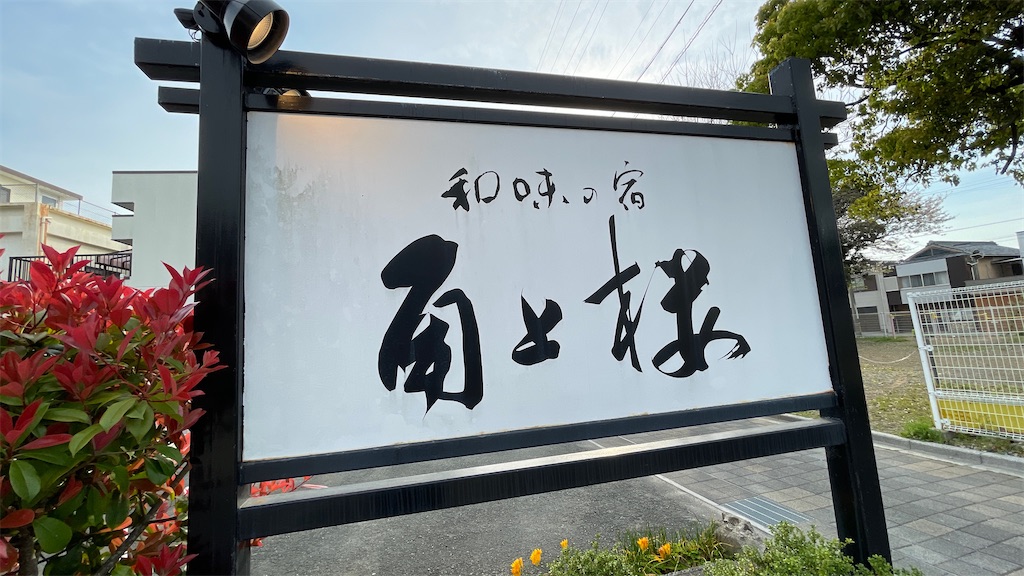 和味の宿
角上楼